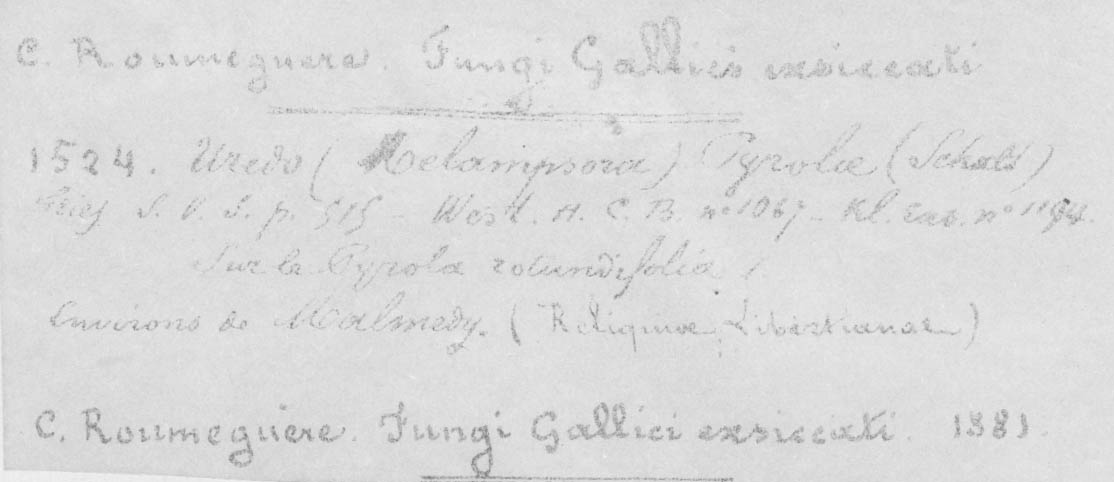 C. Roumeguere. Fungi Gallici exsiccati
1524. Uredo (Melampsora) Pyrolae (Schulz)
Fries S. V. S. p. 515 - West. H. C. B. n° 1067 - Kl. exs. n° 1194.
Sur le Pyrola rotundifolia
Environs de Malmedy. (Reliquiae Libertianae)
C. Roumeguere. Fungi Gallici exsiccati. 1881.